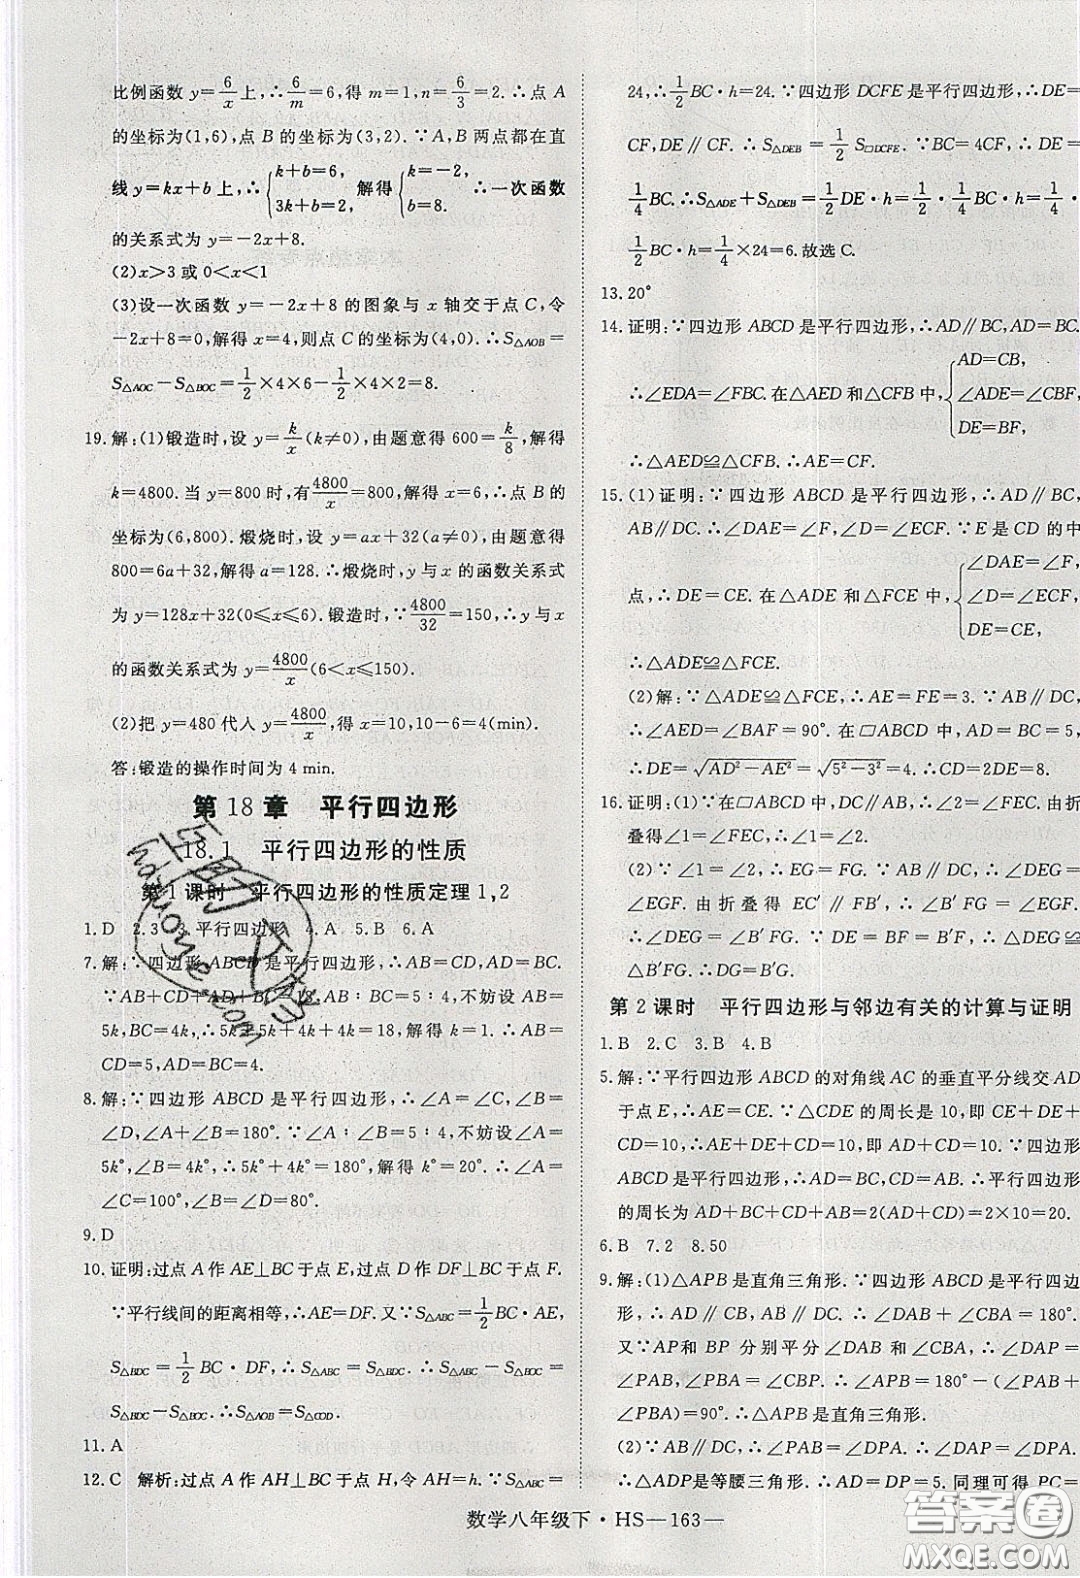 比例函数 y=6/x 上,∴6/m=6,得 m=1,n=6/3=2.∴点 A
的坐标为(1,6),点 B 的坐标为(3,2).∵A,B 两点都在直
线 y=kx+b 上,∴{k+b=6, 3k+b=2, 解得{k=-2, b=8. ∴一次函数
的关系式为 y=-2x+8.
(2)x>3 或 0<x<1
(3)设一次函数 y=-2x+8 的图象与 x 轴交于点 C,令
-2x+8=0,解得 x=4,则点 C 的坐标为(4,0).∴S△AOB=
S△AOC-S△BOC=1/2×4×6-1/2×4×2=8.
19.解:(1)锻造时,设 y=k/x(k≠0),由题意得 600=k/8,解得
k=4800.当 y=800 时,有4800/x=800,解得 x=6.∴点 B 的
坐标为(6,800).煅烧时,设 y=ax+32(a≠0),由题意得
800=6a+32,解得 a=128.∴煅烧时,y 与 x 的函数关系式
为 y=128x+32(0≤x≤6).锻造时,∵4800/32=150,∴y 与 x
的函数关系式为 y=4800/x(6<x≤150).
(2)把 y=480 代入 y=4800/x,得 x=10,10-6=4(min).
答:锻造的操作时间为 4 min.
第 18 章 平行四边形
18.1 平行四边形的性质
第 1 课时 平行四边形的性质定理 1,2
1.D 2.3 3.平行四边形 4.A 5.B 6.A
7.解:∵四边形 ABCD 是平行四边形,∴AB=CD,AD=BC.
∵AB+CD+AD+BC=18,AB∶BC=5∶4,不妨设 AB=
5k,BC=4k,∴5k+5k+4k+4k=18,解得 k=1.∴AB=
CD=5,AD=BC=4.
8.解:∵四边形 ABCD 是平行四边形,∴∠A=∠C,∠B=
∠D,∠A+∠B=180°.∵∠A∶∠B=5∶4,不妨设∠A=
5k°,∠B=4k°,∴5k°+4k°=180°,解得 k°=20°.∴∠A=
∠C=100°,∠B=∠D=80°.
9.D
10.证明:过点 A 作 AE⊥BC 于点 E,过点 D 作 DF⊥BC 于点 F.
∵平行线间的距离相等,∴AE=DF.又∵S△ABC=1/2 BC·AE,
S△BDC=1/2 BC·DF,∴S△ABC=S△BDC.∴S△ABC-S△BOC=
S△BDC-S△BOC.∴S△AOB=S△COD.
11.A
12.C 解析:过点 A 作 AH⊥BC 于点 H,令 AH=h.∵S△ABC=
24,∴1/2 BC·h=24.∵四边形 DCFE 是平行四边形,∴DE=
CF,DE∥CF.∴S△DEB=1/2 S▱DCFE.∵BC=4CF,∴DE=
1/4 BC.∴S△ADE+S△DEB=1/2 DE·h=1/2·1/4 BC·h=1/4·
1/2 BC·h=1/4×24=6.故选 C.
13.20°
14.证明:∵四边形 ABCD 是平行四边形,∴AD∥BC,AD=BC.
∴∠EDA=∠FBC.在△AED 和△CFB 中,{AD=CB, ∠ADE=∠CBF, DE=BF,
∴△AED≌△CFB.∴AE=CF.
15.(1)证明:∵四边形 ABCD 是平行四边形,∴AD∥BC,
AB∥DC.∴∠DAE=∠F,∠D=∠ECF.∵E 是 CD 的中
点,∴DE=CE.在△ADE 和△FCE 中,{∠DAE=∠F, ∠D=∠ECF, DE=CE,
∴△ADE≌△FCE.
(2)解:∵△ADE≌△FCE,∴AE=FE=3.∵AB∥DC,
∴∠AED=∠BAF=90°.在▱ABCD 中,AD=BC=5,
∴DE=√AD²-AE²=√5²-3²=4.∴CD=2DE=8.
16.证明:(1)∵在▱ABCD 中,AD∥BC,∴∠2=∠FEC.由折
叠得∠1=∠FEC.∴∠1=∠2.
(2)∵∠1=∠2,∴EG=GF.∵AD∥BC,∴∠DEG=
∠EGF.由折叠得 EC′∥FB′,∴∠B′FG=∠EGF.
∴∠DEG=∠B′FG.∵DE=BF=B′F,∴△DEG≌
△B′FG.∴DG=B′G.
第 2 课时 平行四边形与邻边有关的计算与证明
1.B 2.C 3.B 4.B
5.解:∵平行四边形 ABCD 的对角线 AC 的垂直平分线交 AD
于点 E,∴AE=CE.∵△CDE 的周长是 10,即 CE+DE+
CD=10,∴AE+DE+CD=10,即 AD+CD=10.∴平行四边形
ABCD 的周长为 AD+BC+CD+AB=2(AD+CD)=2×10=20.
6.B 7.2 8.50
9.解:(1)△APB 是直角三角形.∵四边形 ABCD 是平行四边
形,∴AD∥CB,AB∥DC.∴∠DAB+∠CBA=180°.
又∵AP 和 BP 分别平分∠DAB 和∠CBA,∴∠DAP=
∠PAB,∠PBA=∠CBP.∴∠APB=180°-(∠PAB+
∠PBA)=90°.∴△APB 是直角三角形.
(2)∵AB∥DC,∴∠BAP=∠DPA.∴∠DAP=∠DPA.
∴△ADP是等腰三角形.∴AD=DP=5.同理可得 PC=
数学八年级下·HS—163—
答案圈
MXQE.COM